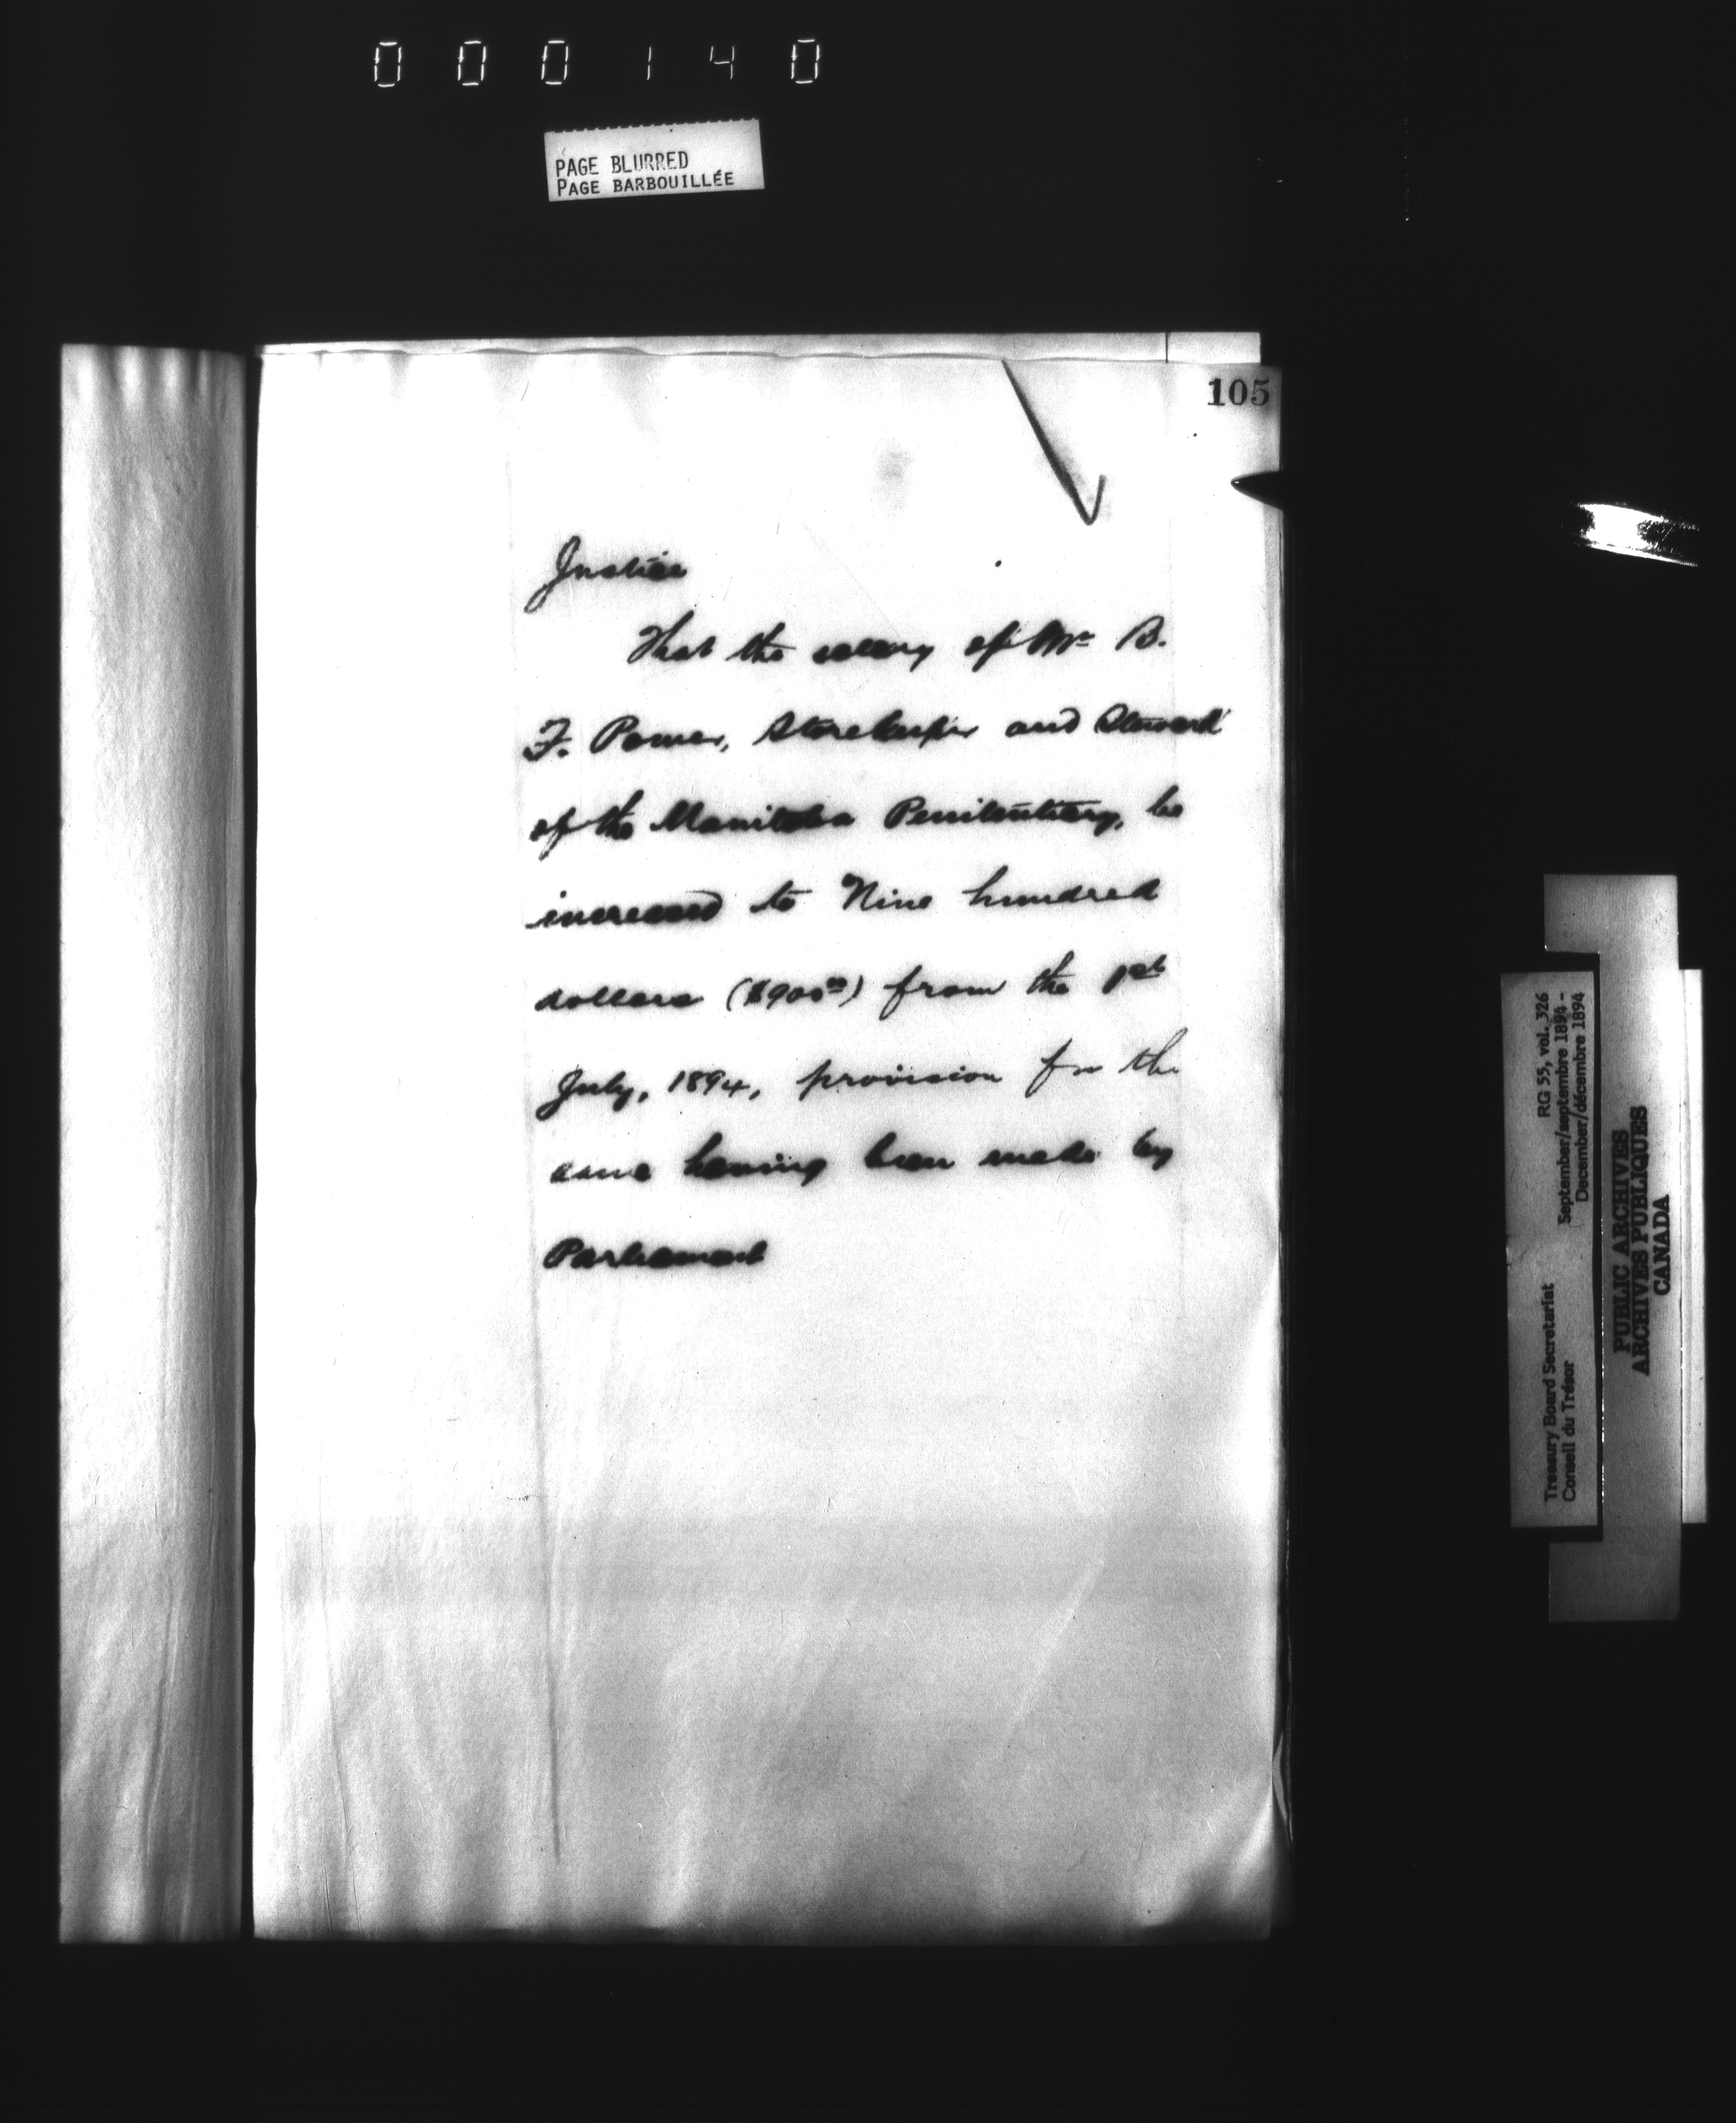 000140
PAGE BLURRED
PAGE BARBOUILLÉE
105
Justice
That the salary of Mr B.
F. Power, Storekeeper and Steward
of the Manitoba Penitentiary, be
increased to Nine hundred
dollars ($900⁰⁰) from the 1st
July, 1894, provision for the
same having been made by
Parliament
Treasury Board Secretariat RG 55, vol. 326
Conseil du Trésor September/septembre 1894 -
December/décembre 1894
PUBLIC ARCHIVES
ARCHIVES PUBLIQUES
CANADA